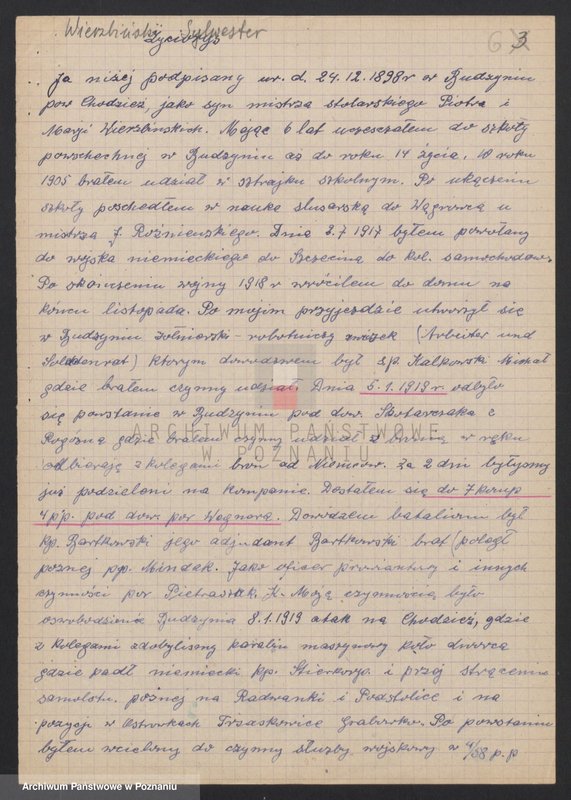 Wierzbiński Sylwester
Życiorys
3
Ja niżej podpisany ur. d. 24.12.1898r w Budzyniu
pow Chodzież, jako syn mistrza stolarskiego Piotra i
Maryi Wierzbińskich. Mając 6 lat uczeszczałem do szkoły
powschechnej w Budzyniu aż do roku 14 życia. W roku
1905 brałem udział w sztrajku szkolnym. Po ukączeniu
szkoły poschedłem w nauke slusarską do Wągrowca u
mistrza J. Rożnienskiego. Dnia 3.7 1917 byłem powołany
do wojska niemieckiego do Szczecina do kol. samochodow.
Po skończeniu wojny 1918 r wróciłem do domu na
końcu listopada. Po mojim przyjezdzie utworzył się
w Budzyniu żołniersko-robotniczy związek (Arbeiter und
Soldatenrat) ktorym dowodzcem był śp. Kalkowski Michał
gdzie brałem czynny udział. Dnia 5.1.1919 r. odbyło
się powstanie w Budzyniu pod dow. Skotarczaka z
Rogozna gdzie brałem czynny udział z bronią w ręku
odbierając z kolegami broń od Niemców. Za 2 dni byłysmy
już podzieleni na kompanie. Dostałem się do 7 komp
4 p/p. pod dow. por Wagnera. Dowodzcem batalionu był
kp. Bartkowski jego adjudant Bartkowski brat (poległ
pozniej pp. Mindak. Jako oficer prowiantury i innych
czynności por Pietrasiak K. Moją czynnoscią było
oswobodzenie Budzynia 8.1.1919 atak na Chodzież, gdzie
z kolegami zdobylismy karabin maszynowy koło dworca
gdzie padł niemiecki kp. i przej strącenie
samolotu. pozniej na Radwanki i Podstolice i na
pozycji w Ostrowkach Trzaskowice Grabowko. Po powstaniu
byłem wcielony do czynny służby wojskowy w 4/58 p.p
ARCHIWUM PAŃSTWOWE
W POZNANIU
Archiwum Państwowe w Poznaniu